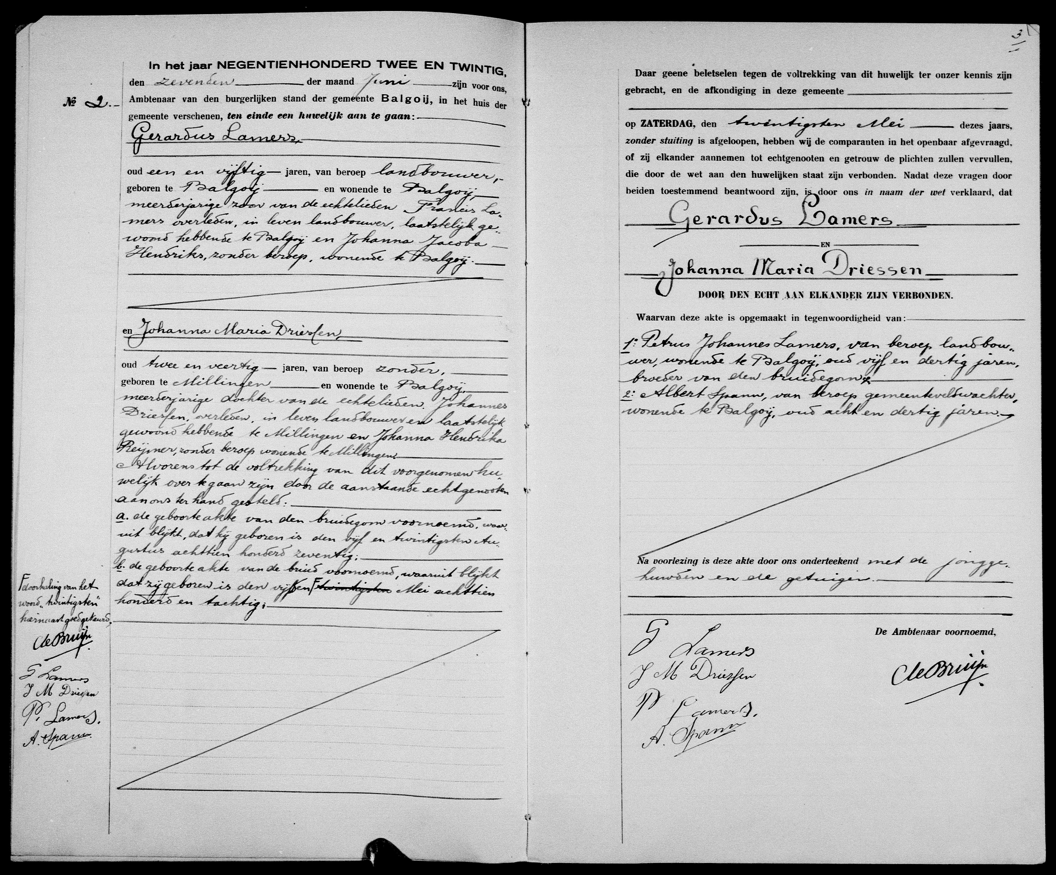 In het jaar NEGENTIENHONDERD TWEE EN TWINTIG,
den zevenden der maand Juni zijn voor ons,
№ 2.
Ambtenaar van den burgerlijken stand der gemeente Balgoij, in het huis der
gemeente verschenen, ten einde een huwelijk aan te gaan:
Gerardus Lamers,
oud een en vijftig jaren, van beroep landbouwer,
geboren te Balgoij en wonende te Balgoij,
meerderjarige zoon van de echtelieden Francis La-
mers overleden, in leven landbouwer, laatstelijk ge-
woond hebbende te Balgoij en Johanna Jacoba
Hendriks, zonder beroep, wonende te Balgoij.
en Johanna Maria Driessen,
oud twee en veertig jaren, van beroep zonder,
geboren te Millingen en wonende te Balgoij,
meerderjarige dochter van de echtelieden Johannes
Driessen, overleden, in leven landbouwer en laatstelijk
gewoond hebbende te Millingen en Johanna Hendrika
Reijmer, zonder beroep wonende te Millingen.
Alvorens tot de voltrekking van dit voorgenomen hu-
welijk over te gaan zijn door de aanstaande echtgenooten
aan ons ter hand gesteld:
a. de geboorteakte van den bruidegom voornoemd, waar-
uit blijkt, dat hij geboren is den vijf en twintigsten Au-
gustus achttien honderd zeventig;
b. de geboorteakte van de bruid voornoemd, waaruit blijkt
dat zij geboren is den vijf en twintigsten Mei achttien
honderd en tachtig;
doorhaling van het
woord "twintigsten"
hiernaast goedgekeurd.
de Bruijn
G Lamers
J M Driessen
P. Lamers.
A. Spann
3
Daar geene beletselen tegen de voltrekking van dit huwelijk ter onzer kennis zijn
gebracht, en de afkondiging in deze gemeente
op ZATERDAG, den twintigsten Mei dezes jaars,
zonder stuiting is afgeloopen, hebben wij de comparanten in het openbaar afgevraagd,
of zij elkander aannemen tot echtgenooten en getrouw de plichten zullen vervullen,
die door de wet aan den huwelijken staat zijn verbonden. Nadat deze vragen door
beiden toestemmend beantwoord zijn, is door ons in naam der wet verklaard, dat
Gerardus Lamers
EN
Johanna Maria Driessen
DOOR DEN ECHT AAN ELKANDER ZIJN VERBONDEN.
Waarvan deze akte is opgemaakt in tegenwoordigheid van:
1: Petrus Johannes Lamers, van beroep landbou-
wer, wonende te Balgoij, oud vijf en dertig jaren,
broeder van den bruidegom,
2: Albert Spann, van beroep gemeenteveldwachter,
wonende te Balgoij, oud acht en dertig jaren.
Na voorlezing is deze akte door ons onderteekend met de jongge-
huwden en de getuigen.
De Ambtenaar voornoemd,
G Lamers
J M Driessen
P Lamers.
A. Spann
de Bruijn